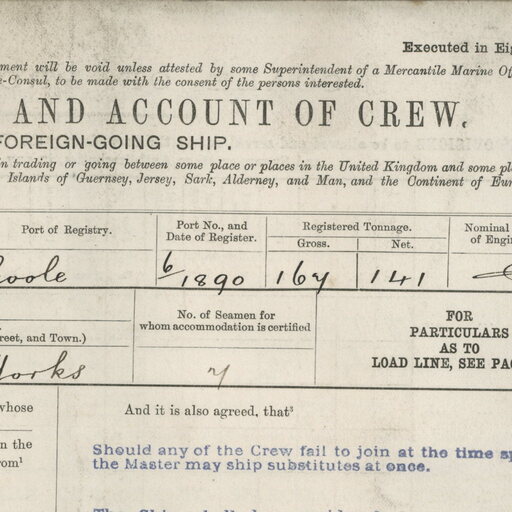 Executed in Eig
ment will be void unless attested by some Superintendent of a Mercantile Marine Of
e-Consul, to be made with the consent of the persons interested.
AND ACCOUNT OF CREW.
FOREIGN-GOING SHIP.
n trading or going between some place or places in the United Kingdom and some pla
Islands of Guernsey, Jersey, Sark, Alderney, and Man, and the Continent of Eur
Port of Registry.
Port No., and
Date of Register.
Registered Tonnage.
Gross.
Net.
Nominal
of Engin
oole
6/1890
167
141
No. of Seamen for
whom accommodation is certified
FOR
PARTICULARS
AS TO
LOAD LINE, SEE PAG
reet, and Town.)
Yorks
7
whose
And it is also agreed, that³
n the
rom¹
Should any of the Crew fail to join at the time sp
the Master may ship substitutes at once.